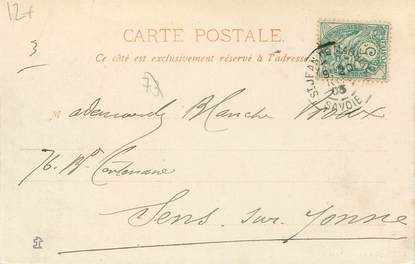 12+
CARTE POSTALE.
Ce côté est exclusivement réservé à l'adresse
3
73
Mademoiselle Blanche Roux
76. Bd Centenaire
Sens sur Yonne
ST JEAN
SAVOIE
05